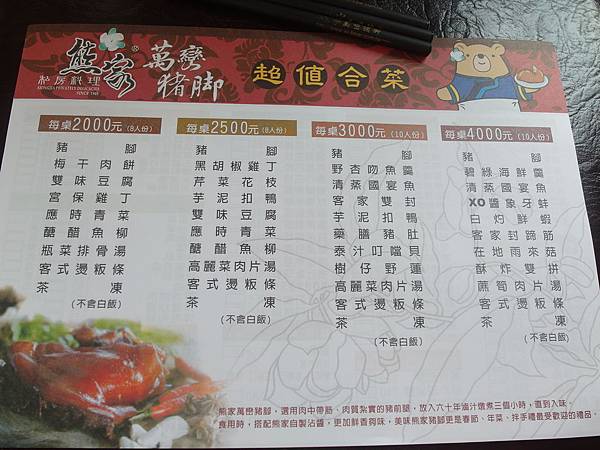 熊家
私房料理
SINCE 1961
萬巒
豬腳
超值合菜
每桌2000元(8人份)
豬腳
梅干肉餅
雙味豆腐
宮保雞丁
應時青菜
醣醋魚柳
瓶菜排骨湯
客式燙粄條
茶凍
(不含白飯)
每桌2500元(8人份)
豬腳
黑胡椒雞丁
芹菜花枝
芋泥扣鴨
雙味豆腐
應時青菜
醣醋魚柳
高麗菜肉片湯
客式燙粄條
茶凍
(不含白飯)
每桌3000元(10人份)
豬腳
野杏吻魚羹
清蒸國宴魚
客家雙封
芋泥扣鴨
藥膳豬肚
泰汁叮噹貝
樹仔野蓮
高麗菜肉片湯
客式燙粄條
茶凍
(不含白飯)
每桌4000元(10人份)
豬腳
碧綠海鮮羹
清蒸國宴魚
XO醬象牙蚌
白灼鮮蝦
客家封蹄筋
在地雨來菇
酥炸雙拼
蔴筍肉片湯
客式燙粄條
茶凍
(不含白飯)
熊家萬巒豬腳，選用肉中帶筋、肉質紮實的豬前腿，放入六十年滷汁燉煮三個小時，直到入味。
食用時，搭配熊家自製沾醬，更加鮮香夠味，美味熊家豬腳更是春節、年菜、拌手禮最受歡迎的禮品。